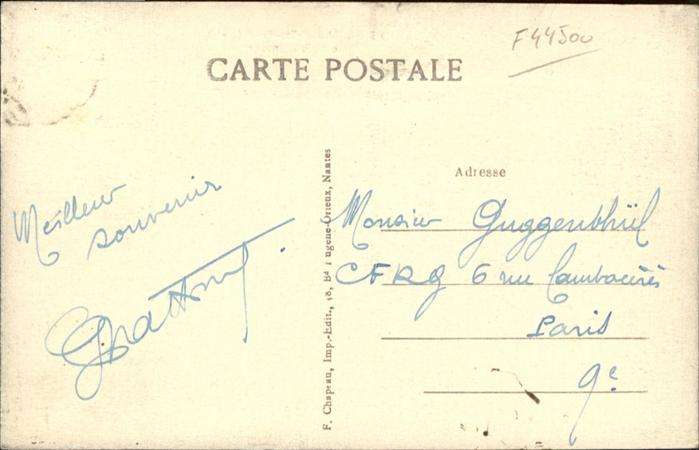 F44500
CARTE POSTALE
Meilleur
souvenir
F. Chapeau, Imp.-Edit., 18, Bd Eugène-Orieux, Nantes
Adresse
Monsieur Guggenbhül
CFRG 6 rue Cambacérès
Paris
9e